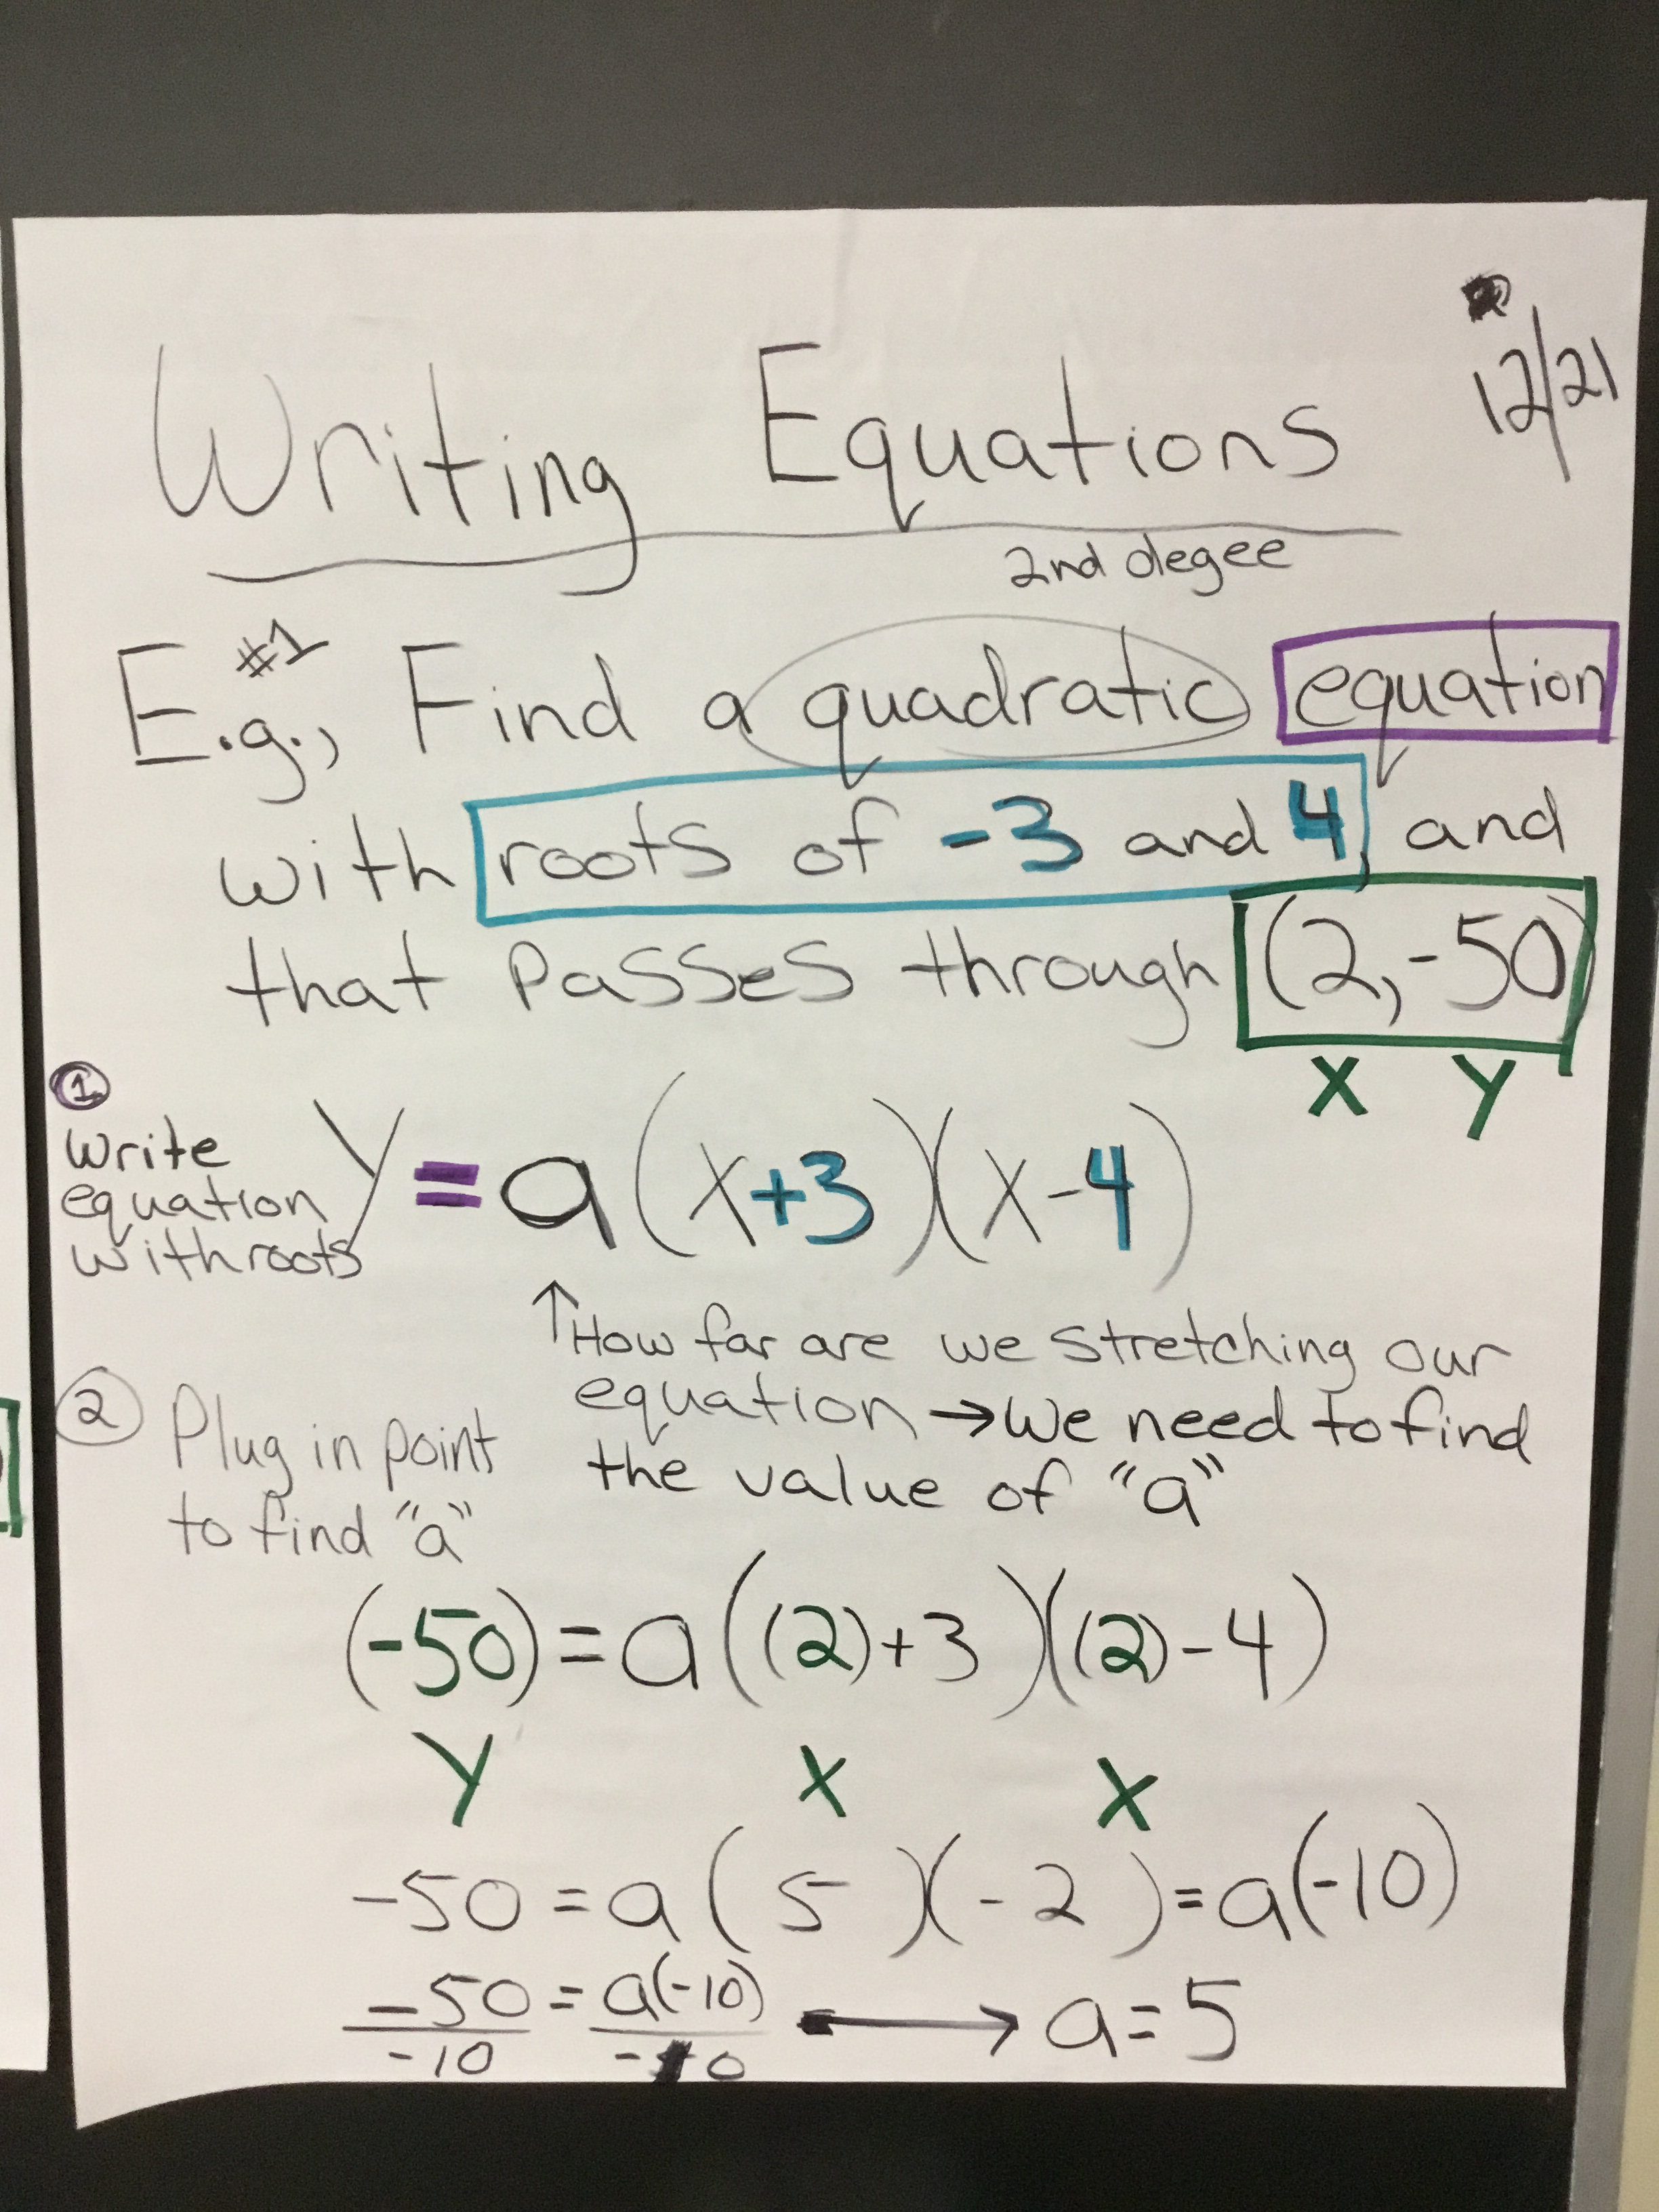 12/21
Writing Equations
2nd degee
E.g., #1 Find a quadratic equation
with roots of -3 and 4, and
that passes through (2,-50)
X Y
①
Write
equation
with roots
y = a(x+3)(x-4)
↑How far are we stretching our
equation → we need to find
the value of "a"
② Plug in point
to find "a"
(-50) = a((2)+3)((2)-4)
Y X X
-50 = a(5)(-2) = a(-10)
-50 = a(-10) → a = 5
-10 -10